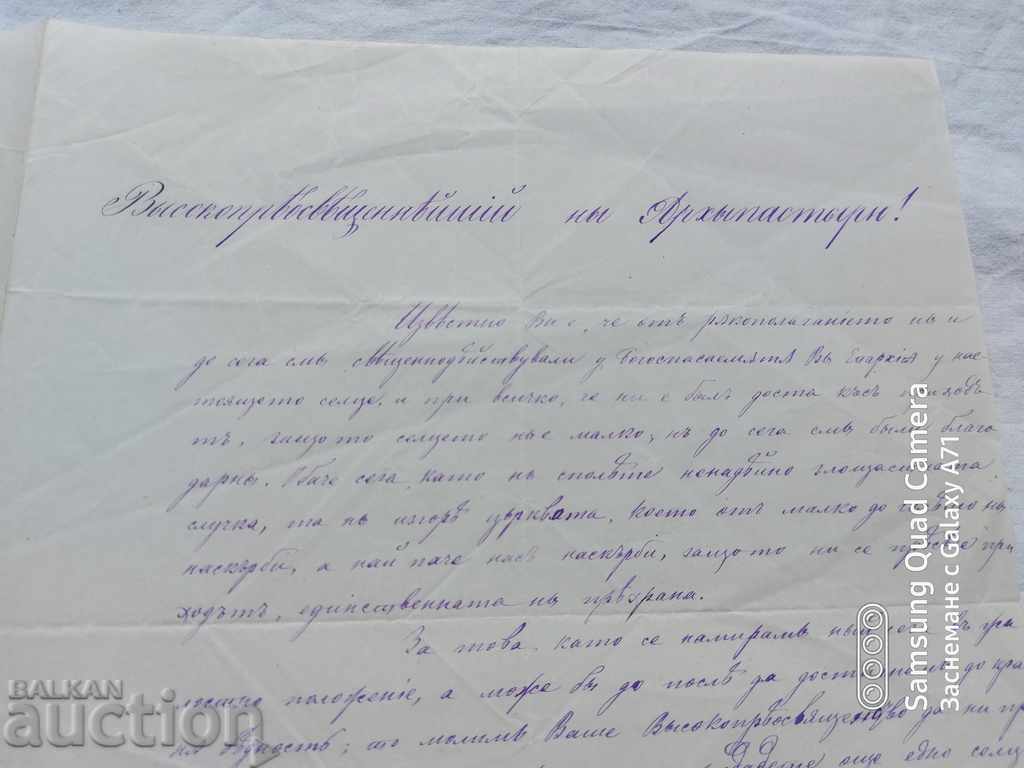 Высокопрѣосвѣщеннѣйшій ны Архыпастырю!
Извѣстно Ви е, че отъ рѫкополаганіето ны и
до сега смы свѣщеннодѣйствували у Богоспасаемѫтѫ Вы Епархіѫ у нас-
тоящето селце, и при всичко, че ни е былъ доста късъ приходъ-
тъ, защото селцето ны е малко, нъ до сега смы были благо
дарны. Обаче сега, като ны сполѣте ненадѣйно
случка, та ны изгорѣ църквата, което отъ малко до голѣмо ны
наскърби, а най паче насъ наскърби, защото ни се при
ходътъ, единственната ны прѣхрана.
За това, като се намирамы въ
положеніе, а може бы до послѣ да достигнемъ до кра
нѫ бѣдность; то молимъ Ваше Высокопрѣосвященство да ни
дадете още едно селц
BALKAN
auction
Samsung Quad Camera
Заснемане с Galaxy A71